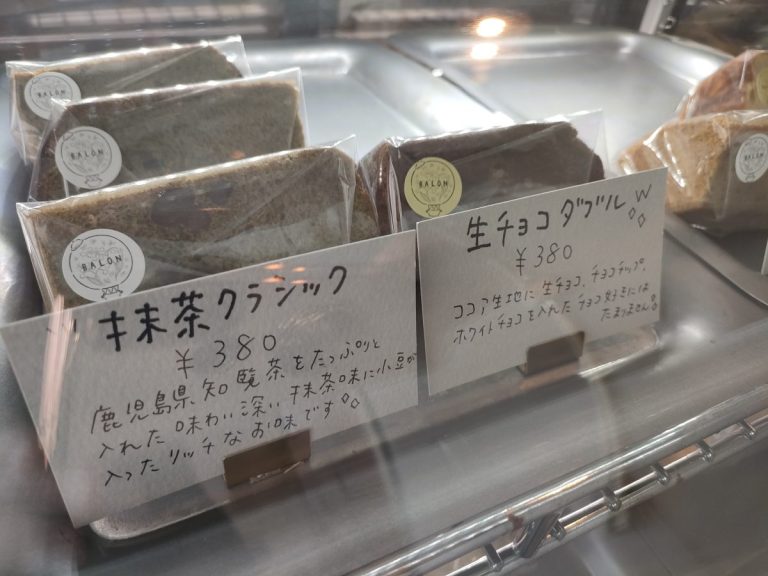 BALÓN
BALÓN
BALÓN
BALÓN
BALÓN
抹茶クラシック
¥380
鹿児島県知覧茶をたっぷりと
入れた味わい深い抹茶味に小豆が
入ったリッチなお味です
生チョコダブルW
¥380
ココア生地に生チョコ、チョコチップ、
ホワイトチョコを入れたチョコ好きには
たまりません